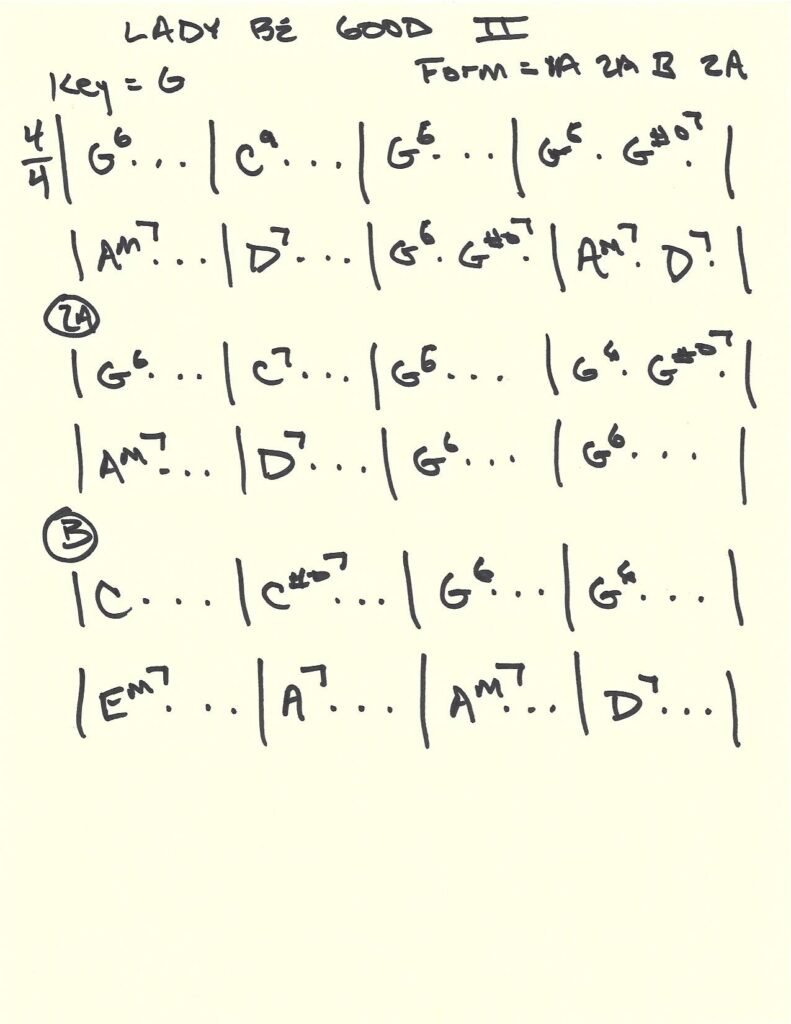 LADY BE GOOD II
Key = G Form = 1A 2A B 2A
4/4 | G6 . . . | C9 . . . | G6 . . . | G6 . G#o7 . |
| Am7 . . . | D7 . . . | G6 . G#o7 . | Am7 . D7 . |
2A
| G6 . . . | C7 . . . | G6 . . . | G6 . G#o7 . |
| Am7 . . . | D7 . . . | G6 . . . | G6 . . . |
B
| C . . . | C#o7 . . . | G6 . . . | G6 . . . |
| Em7 . . . | A7 . . . | Am7 . . . | D7 . . . |